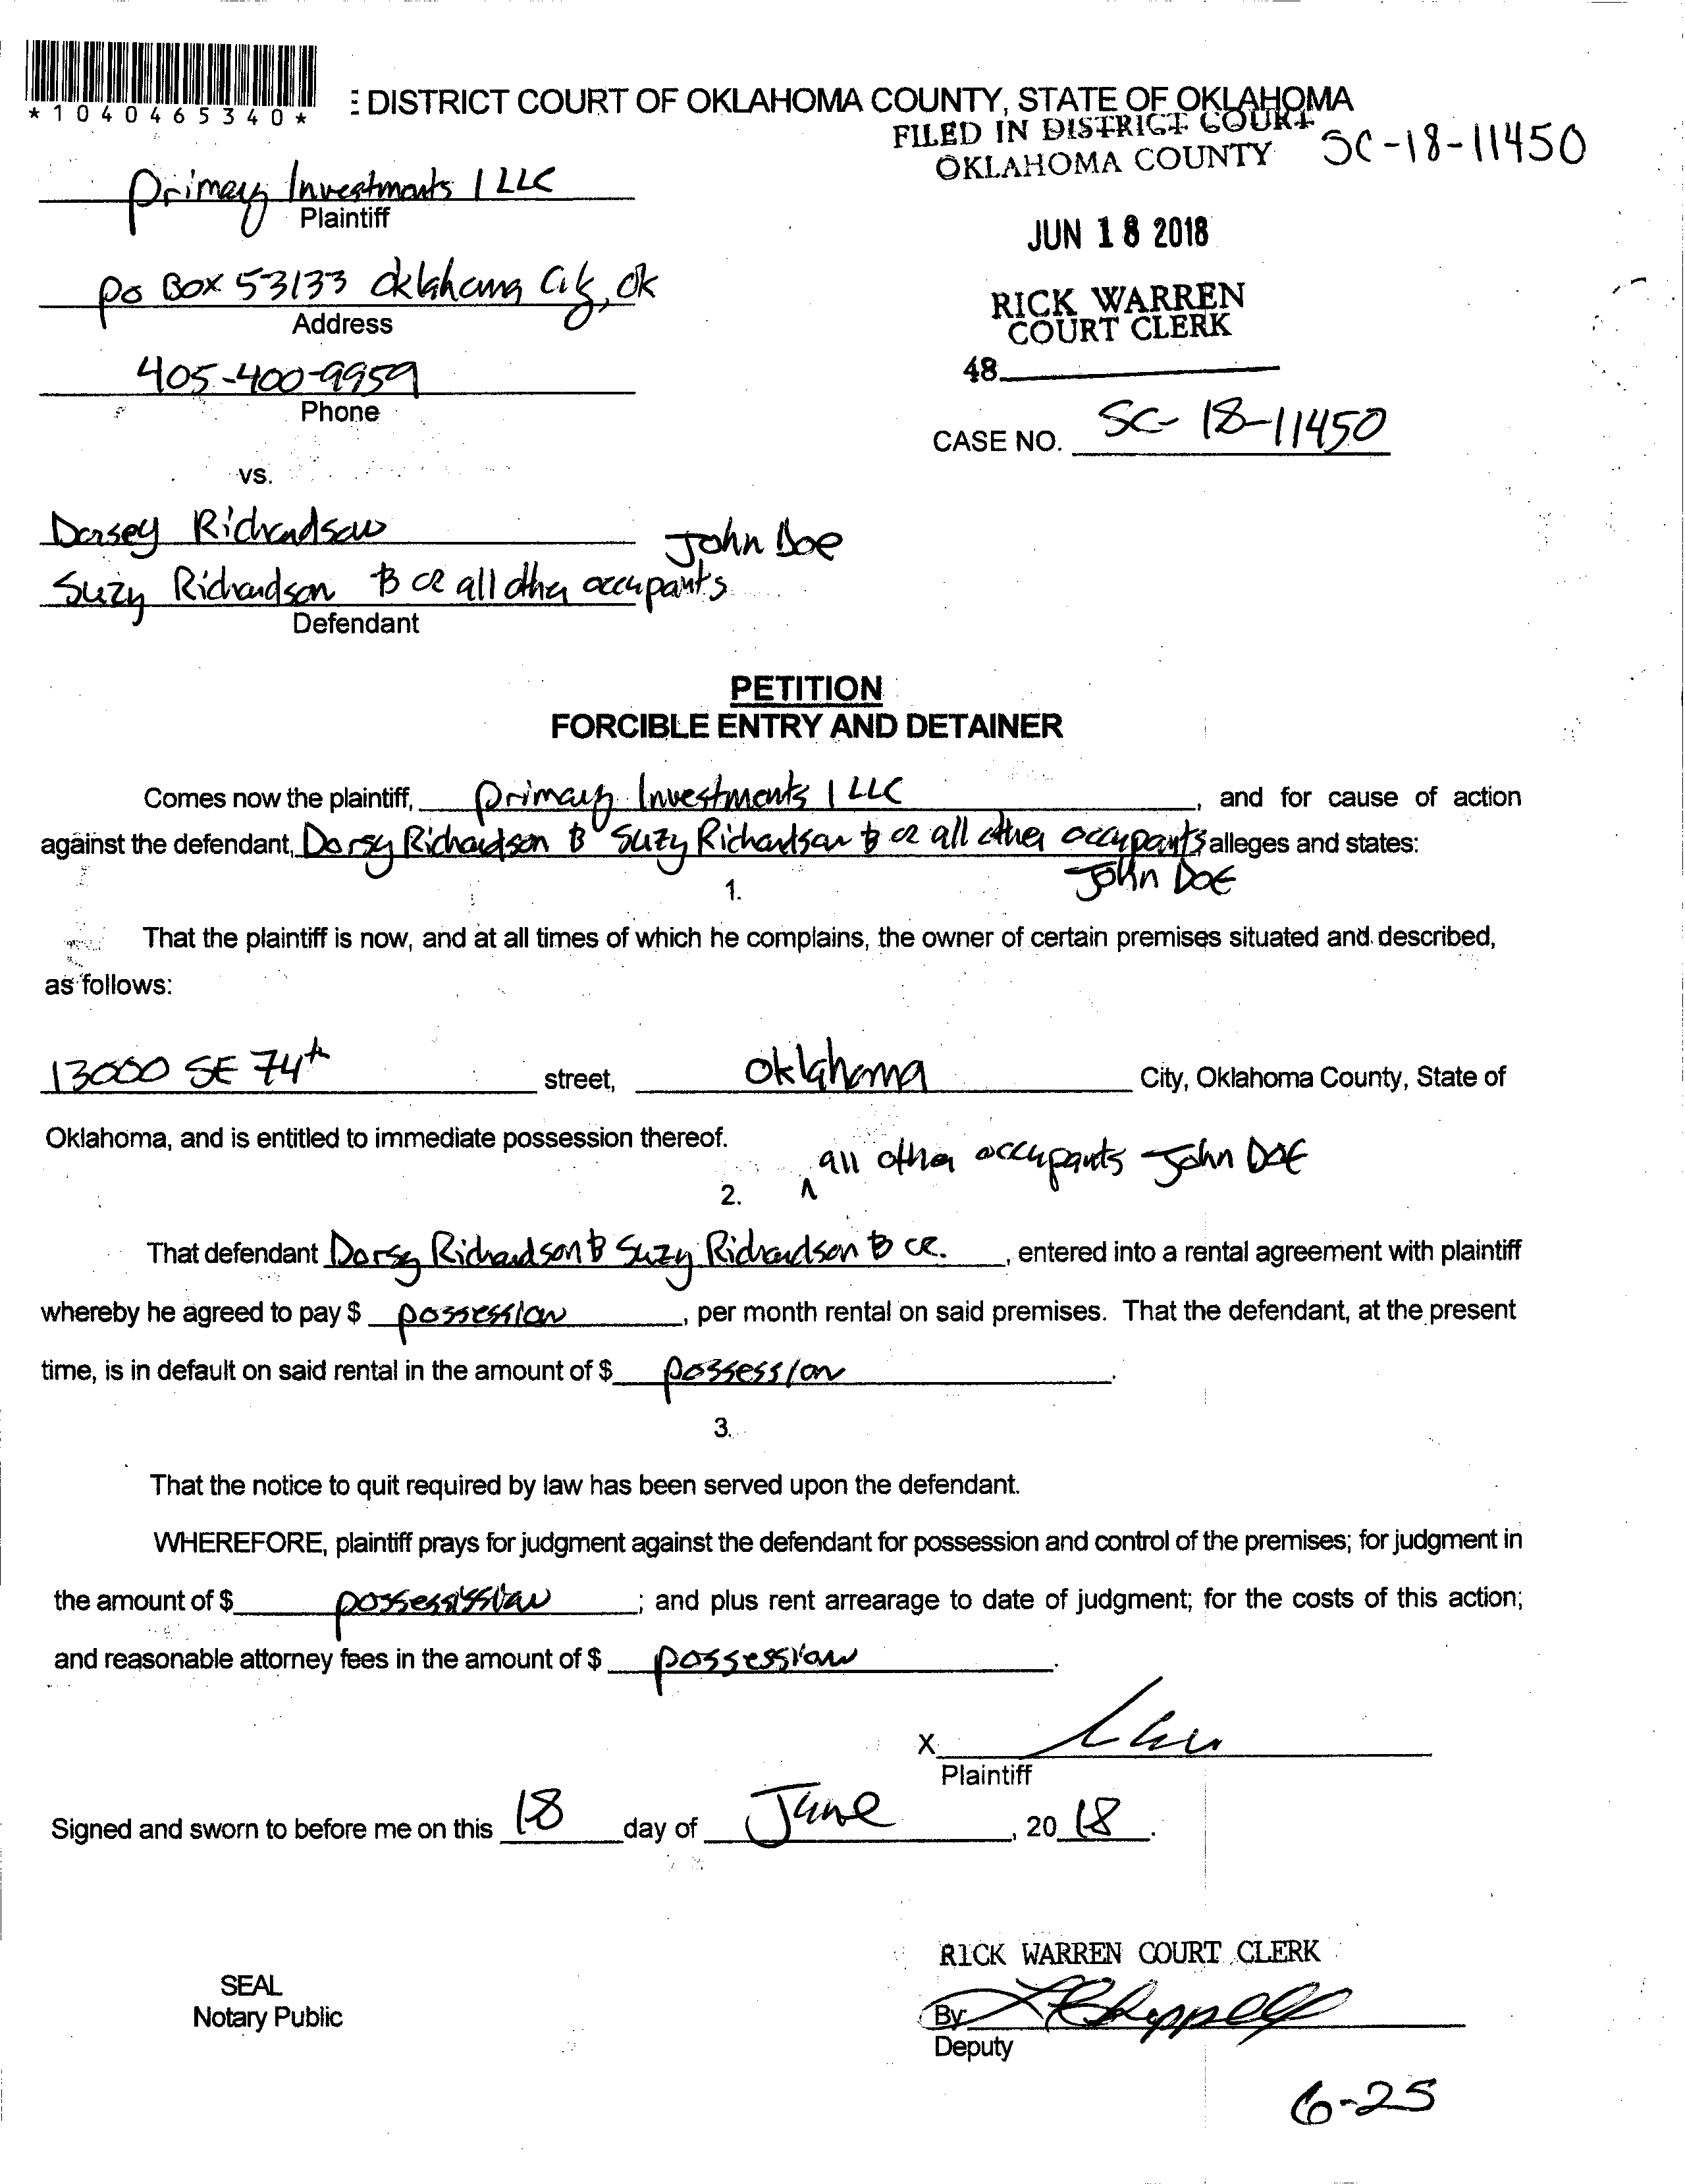 *1040465340*
E DISTRICT COURT OF OKLAHOMA COUNTY, STATE OF OKLAHOMA
FILED IN DISTRICT COURT
OKLAHOMA COUNTY
SC-18-11450
Primary Investments 1 LLC
Plaintiff
JUN 18 2018
PO Box 53133 Oklahoma City, Ok
Address
RICK WARREN
COURT CLERK
405-400-9959
Phone
48
CASE NO. SC-18-11450
vs.
Dorsey Richardson John Doe
Suzy Richardson & or all other occupants
Defendant
PETITION
FORCIBLE ENTRY AND DETAINER
Comes now the plaintiff, Primary Investments 1 LLC, and for cause of action
against the defendant, Dorsy Richardson & Suzy Richardson & or all other occupants alleges and states:
John DOE
1.
That the plaintiff is now, and at all times of which he complains, the owner of certain premises situated and described,
as follows:
13000 SE 74th street, Oklahoma City, Oklahoma County, State of
Oklahoma, and is entitled to immediate possession thereof.
all other occupants John DOE
2.
That defendant Dorsy Richardson & Suzy Richardson & or., entered into a rental agreement with plaintiff
whereby he agreed to pay $ possession, per month rental on said premises. That the defendant, at the present
time, is in default on said rental in the amount of $ possession.
3.
That the notice to quit required by law has been served upon the defendant.
WHEREFORE, plaintiff prays for judgment against the defendant for possession and control of the premises; for judgment in
the amount of $ possession; and plus rent arrearage to date of judgment; for the costs of this action;
and reasonable attorney fees in the amount of $ possession.
X
Plaintiff
Signed and sworn to before me on this 18 day of June, 20 18.
RICK WARREN COURT CLERK
SEAL
Notary Public
By:
Deputy
6-25